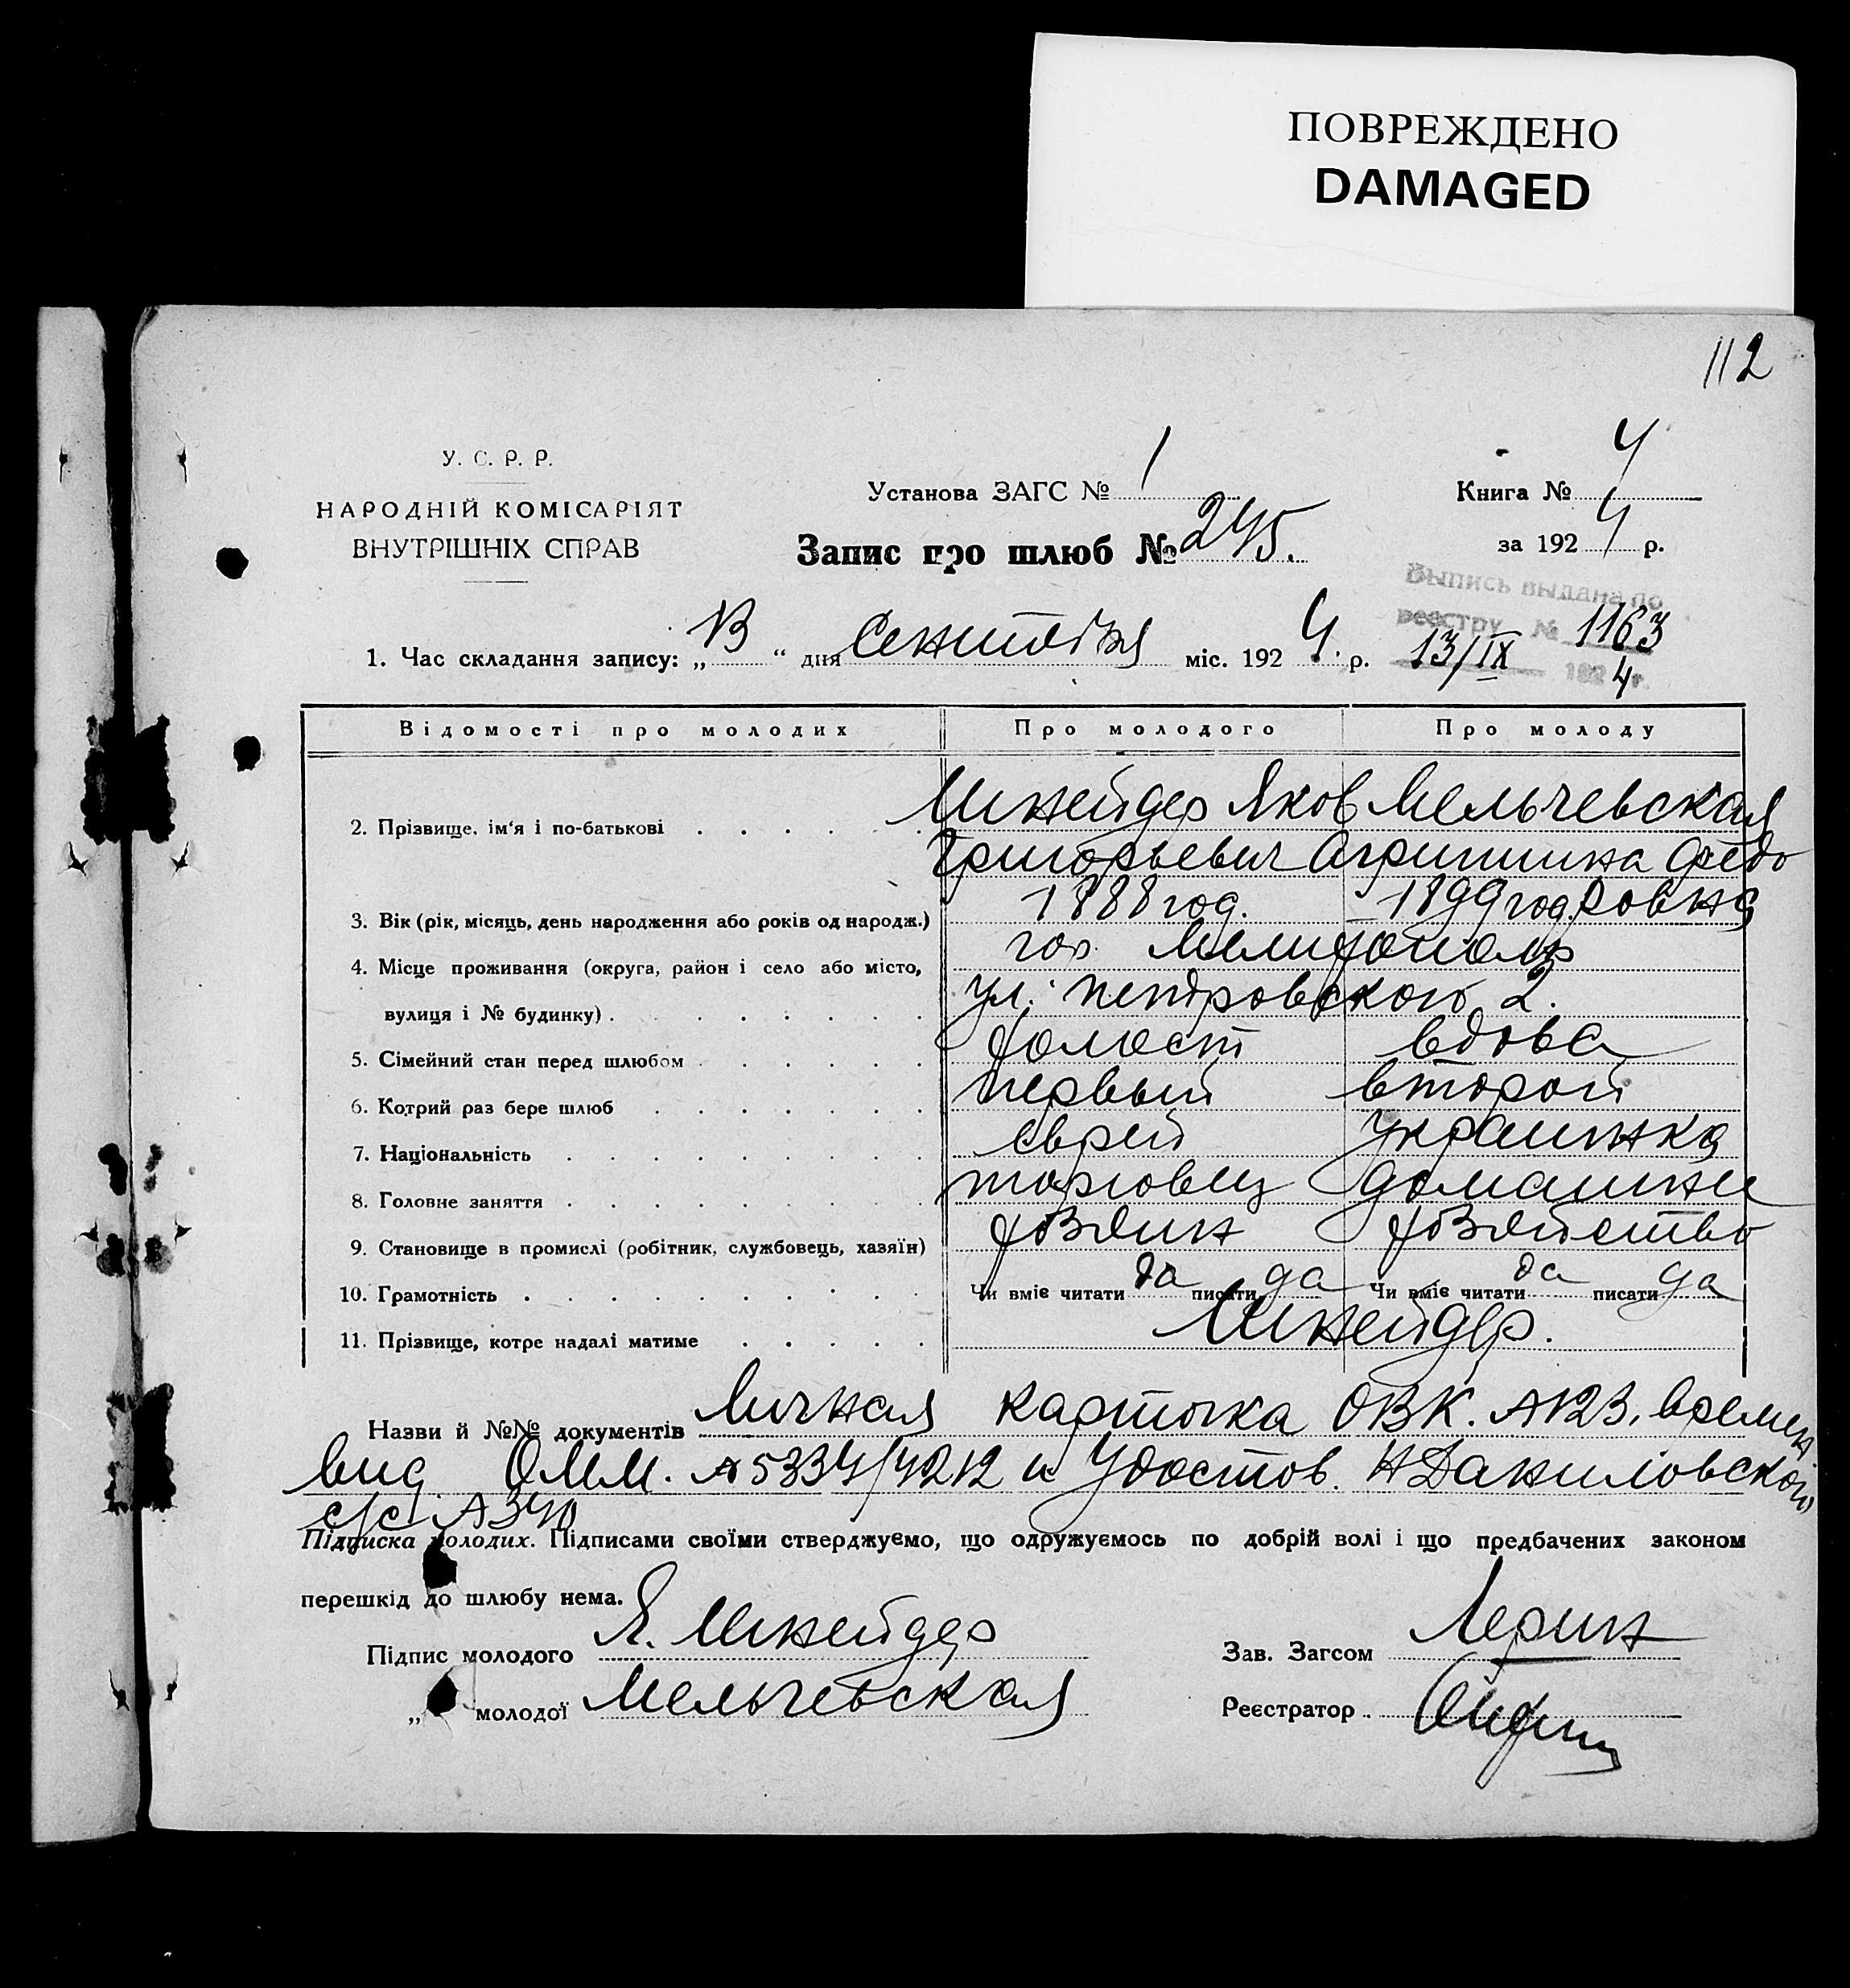 ПОВРЕЖДЕНО
DAMAGED
112
У. С. Р. Р.
НАРОДНІЙ КОМІСАРІЯТ
ВНУТРІШНІХ СПРАВ
Установа ЗАГС № 1
Запис про шлюб № 245.
Книга № 4
за 1924 р.
Выпись выдана по
реестру № 1163
13/IX 1924г.
1. Час складання запису: „13“ дня Сентября міс. 1924. р.
Відомості про молодих Про молодого Про молоду
2. Прізвище, ім'я і по-батькові Шнейдер Яков Мельчевская
Григорьевич Агрипина Федо
ровна
3. Вік (рік, місяць, день народження або років од народж.) 1888 год. 1899 год.
4. Місце проживання (округа, район і село або місто, гор. Мелитополь
вулиця і № будинку) ул. Петровского 2.
5. Сімейний стан перед шлюбом холост вдова
6. Котрий раз бере шлюб первый второй
7. Національність еврей украинка
8. Головне заняття торговец домашнее
9. Становище в промислі (робітник, службовець, хазяїн) хозяин хозяйство
10. Грамотність Чи вміє читати да писати да Чи вміє читати да писати да
11. Прізвище, котре надалі матиме Шнейдер.
Назви й №№ документів Личная карточка ОВК. №123, времен
вид ОММ. №5334/4212 и Удостов. НДаниловского
с/с №340
Підписка молодих. Підписами своїми стверджуємо, що одружуємось по добрій волі і що предбачених законом
перешкід до шлюбу нема.
Підпис молодого Я. Шнейдер
Зав. Загсом
„ молодої Мельчевская
Реєстратор